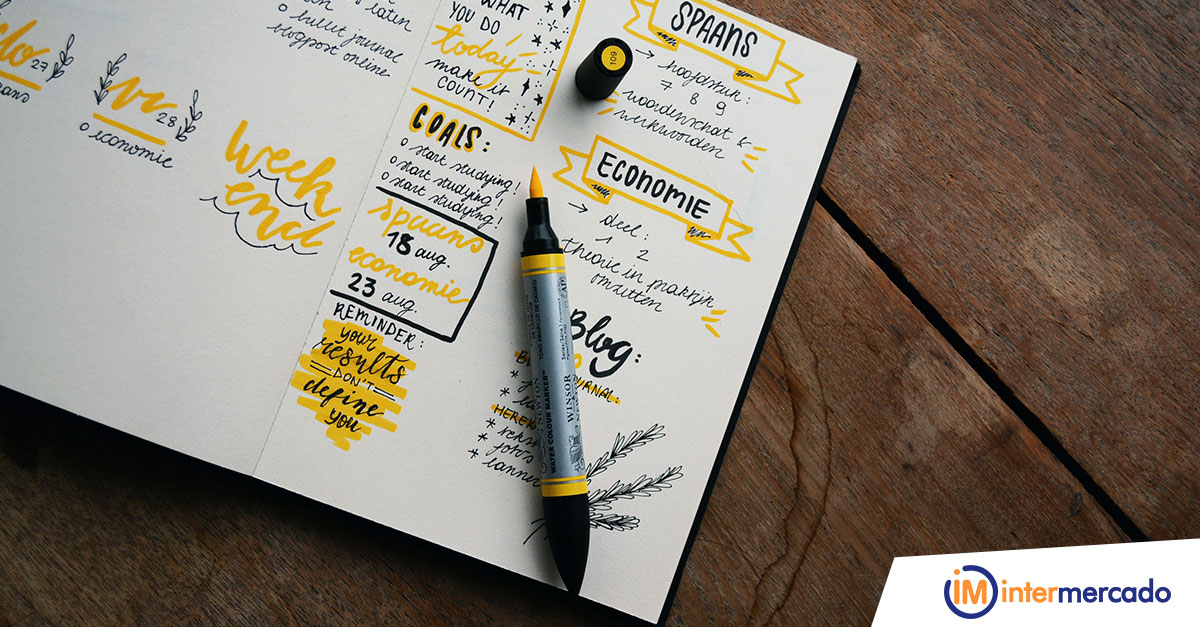 laten
o bullet journal
blogpost online
27
vr 28
o economie
Week
end
WHAT
YOU DO
today
make it
COUNT!
GOALS:
o start studying!
o start studying!
o start studying!
spaans
18 aug.
economie
23 aug.
REMINDER:
your
results
DON'T
define
you
SPAANS
→ hoofdstuk:
7 8 9
woordenschat &
werkwoorden
ECONOMIE
→ deel:
1 2
theorie in praktijk
omzetten
Blog:
109
WATER COLOUR MARKER™
WINSOR
NEWTON
iM intermercado